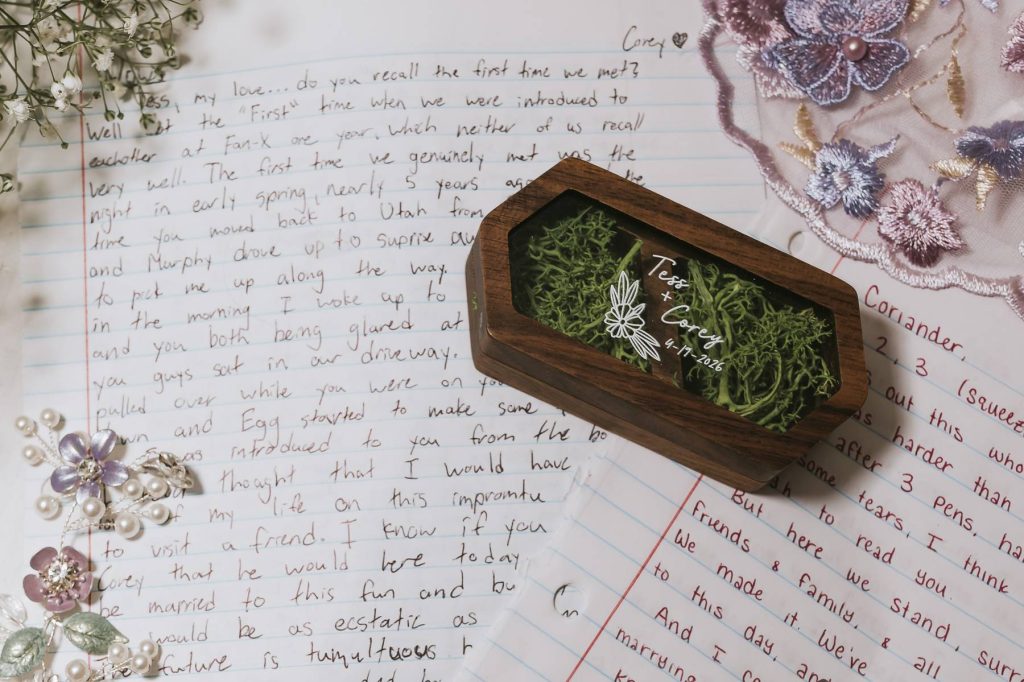 Corey ♥
Tess, my love... do you recall the first time we met?
Well not the "First" time when we were introduced to
eachother at Fan-X one year, which neither of us recall
very well. The first time we genuinely met was the
night in early spring, nearly 5 years ago the
time you moved back to Utah from
and Murphy drove up to suprise
to pick me up along the way.
in the morning I woke up to
and you both being glared at
you guys sat in our driveway.
pulled over while you were on
and Egg started to make some
was introduced to you from the
thought that I would have
of my life on this impromtu
to visit a friend. I know if you
Corey that he would here today
be married to this fun and
would be as ecstatic as
future is tumultuous
Tess
+
Corey
4-17-2026
Coriander,
2, 3 (Squeeze
out this
harder than
after 3 pens,
some tears, I think
to read you
But here we stand,
friends & family, &
We made it. We've all
to this day, and
And I
marrying